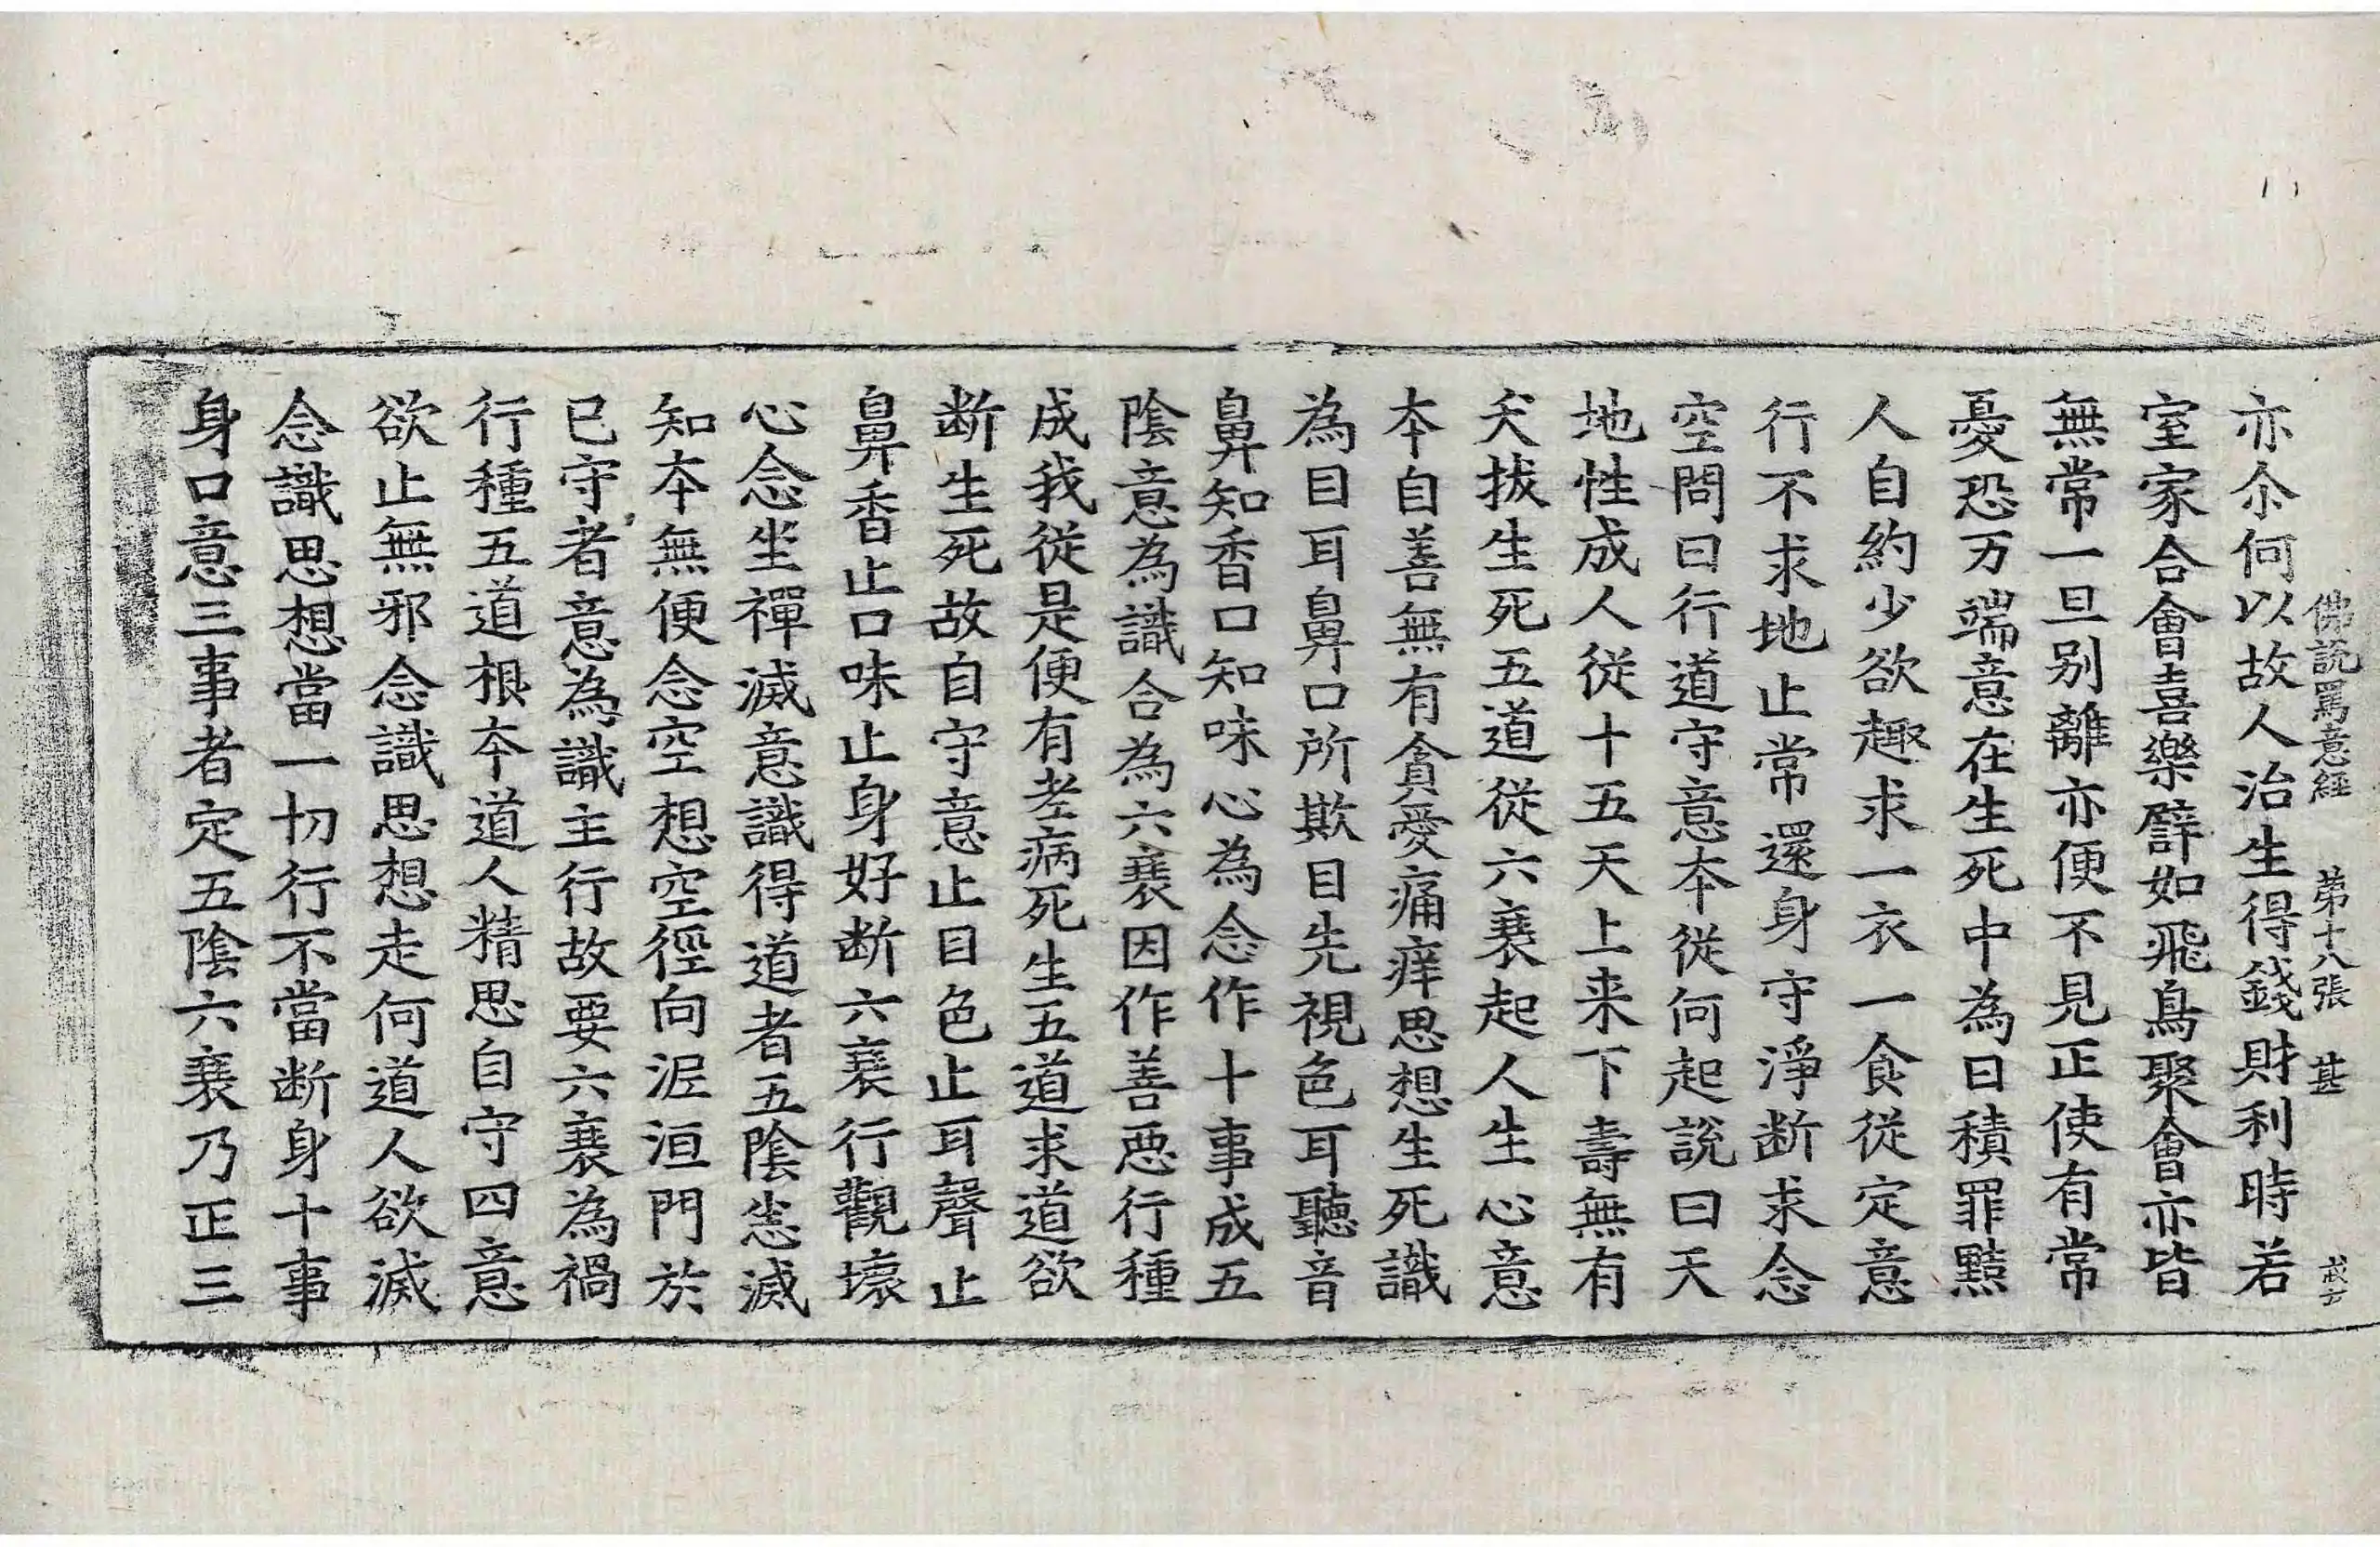 佛說罵意經 第十八張 甚
亦尒何以故人治生得錢財利時若
室家合會喜樂譬如飛鳥聚會亦皆
無常一旦别離亦便不見正使有常
憂恐万端意在生死中為日積罪黠
人自約少欲趣求一衣一食從定意
行不求地止常還身守淨断求念
空問曰行道守意本從何起說曰天
地性成人從十五天上来下壽無有
夭拔生死五道從六衰起人生心意
本自善無有貪愛痛痒思想生死識
為目耳鼻口所欺目先視色耳聽音
鼻知香口知味心為念作十事成五
陰意為識合為六衰因作善惡行種
成我從是便有老病死生五道求道欲
断生死故自守意止目色止耳聲止
鼻香止口味止身好断六衰行觀壞
心念坐禪滅意識得道者五陰悉滅
知本無便念空想空徑向泥洹門於
已守者意為識主行故要六衰為禍
行種五道根本道人精思自守四意
欲止無邪念識思想走何道人欲滅
念識思想當一切行不當断身十事
身口意三事者定五陰六衰乃正三